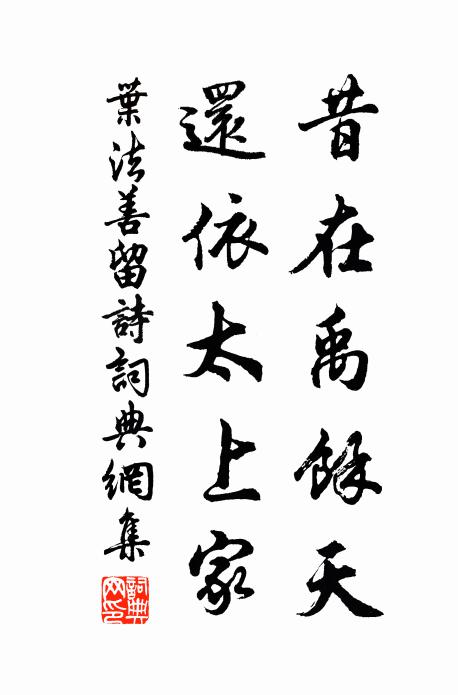 昔在禹餘天
還依太上家
葉法善留詩詞典網集
詞典網印